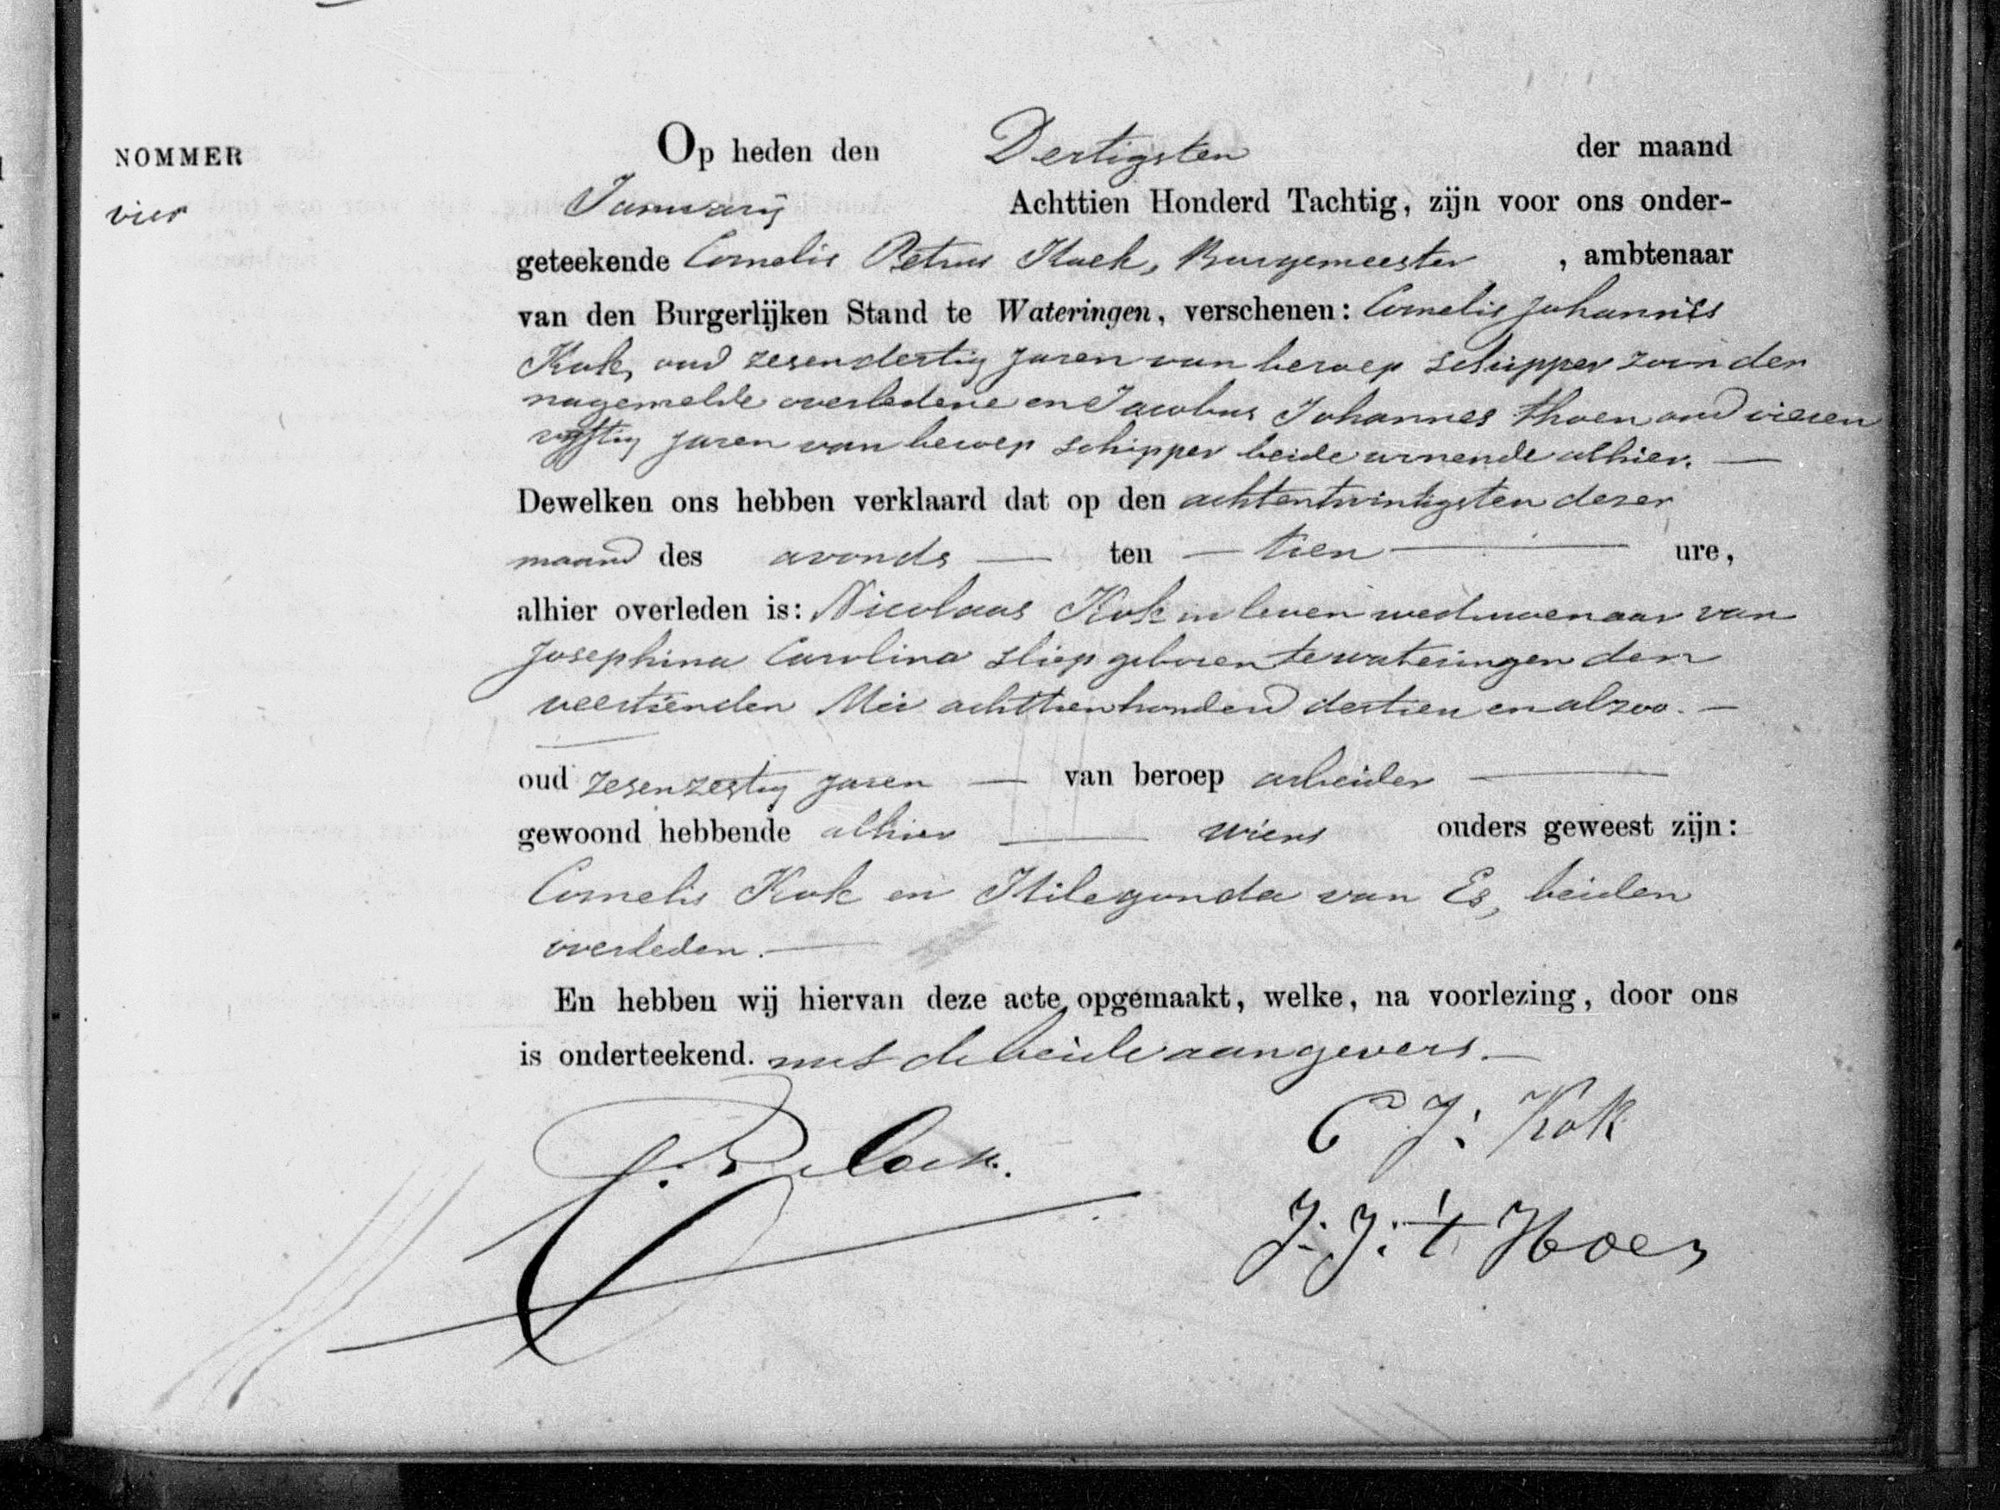 NOMMER
vier
Op heden den Dertigsten der maand
Januarij Achttien Honderd Tachtig, zijn voor ons onder-
geteekende Cornelis Petrus Hoek, Burgemeester, ambtenaar
van den Burgerlijken Stand te Wateringen, verschenen: Cornelis Johannes
Kok, oud zesendertig jaren van beroep schipper zoon der
nagemelde overledene en Jacobus Johannes thoen oud vieren
vijftig jaren van beroep schipper beide wonende alhier. —
Dewelken ons hebben verklaard dat op den achtentwintigsten dezer
maand des avonds — ten — tien — ure,
alhier overleden is: Nicolaas Kok in leven weduwenaar van
Josephina Carolina Sliep geboren te wateringen den
veertienden Mei achttienhonderd dertien en alzoo. —
oud zesenzestig jaren — van beroep arbeider —
gewoond hebbende alhier — wiens ouders geweest zijn:
Cornelis Kok en Hilegonda van Es, beiden
overleden. —
En hebben wij hiervan deze acte opgemaakt, welke, na voorlezing, door ons
is onderteekend. met de beide aangevers. —
C J: Kok
J: J: 't Hoen